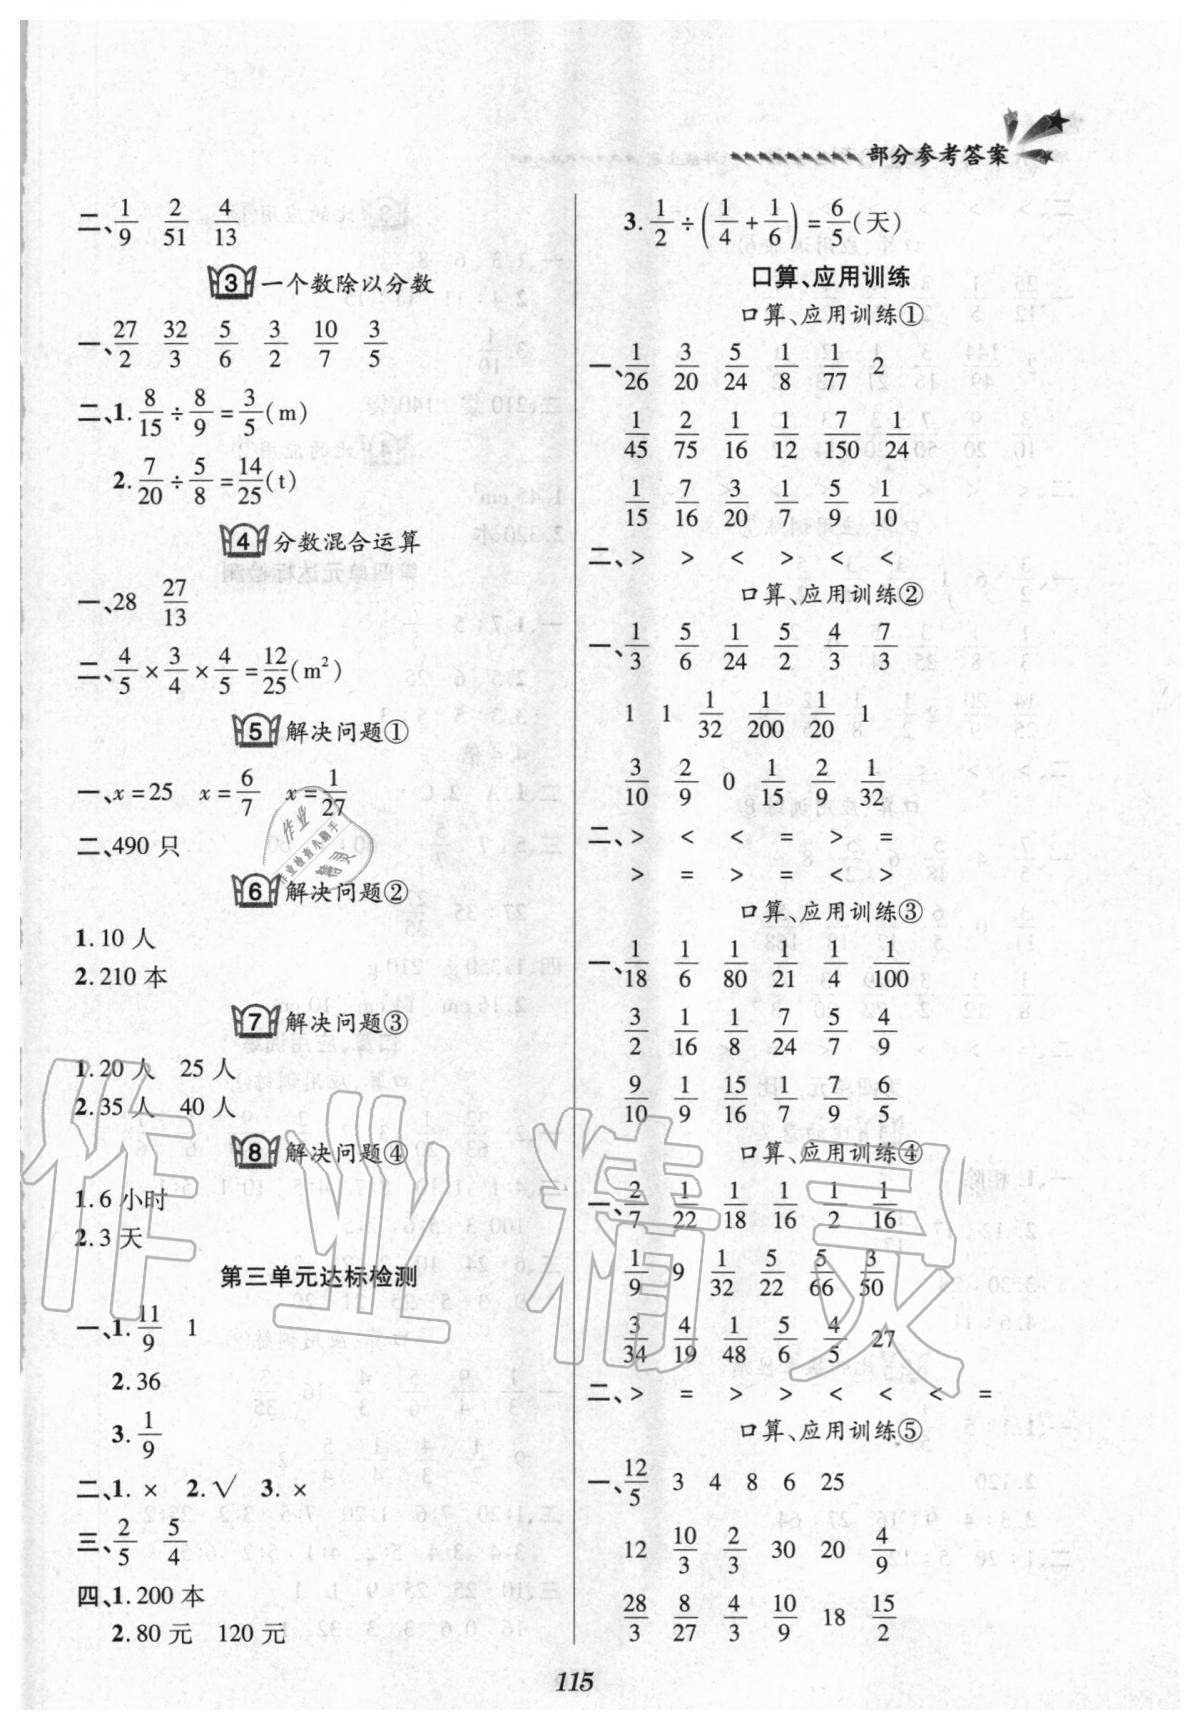 部分参考答案
二、1/9 2/51 4/13
3 一个数除以分数
一、27/2 32/3 5/6 3/2 10/7 3/5
二、1. 8/15÷8/9=3/5(m)
2. 7/20÷5/8=14/25(t)
4 分数混合运算
一、28 27/13
二、4/5×3/4×4/5=12/25(m²)
5 解决问题①
一、x=25 x=6/7 x=1/27
二、490 只
6 解决问题②
1.10 人
2.210 本
7 解决问题③
1.20 人 25 人
2.35 人 40 人
8 解决问题④
1.6 小时
2.3 天
第三单元达标检测
一、1. 11/9 1
2.36
3. 1/9
二、1. × 2. √ 3. ×
三、2/5 5/4
四、1.200 本
2.80 元 120 元
3. 1/2÷(1/4+1/6)=6/5(天)
口算、应用训练
口算、应用训练①
一、1/26 3/20 5/24 1/8 1/77 2
1/45 2/75 1/16 1/12 7/150 1/24
1/15 7/16 3/20 1/7 5/9 1/10
二、> > < > < <
口算、应用训练②
一、1/3 5/6 1/24 5/2 4/3 7/3
1 1 1/32 1/200 1/20 1
3/10 2/9 0 1/15 2/9 1/32
二、> < < = > =
> = > = < >
口算、应用训练③
一、1/18 1/6 1/80 1/21 1/4 1/100
3/2 1/16 1/8 7/24 5/7 4/9
9/10 1/9 15/16 1/7 7/9 6/5
口算、应用训练④
一、2/7 1/22 1/18 1/16 1/2 1/16
1/9 9 1/32 5/22 5/66 3/50
3/34 4/19 1/48 5/6 4/5 27
二、> = > > < < < =
口算、应用训练⑤
一、12/5 3 4 8 6 25
12 10/3 2/3 30 20 4/9
28/3 8/27 4/3 10/9 18 15/2
115
作业精灵
作业
作业检查小助手
精灵